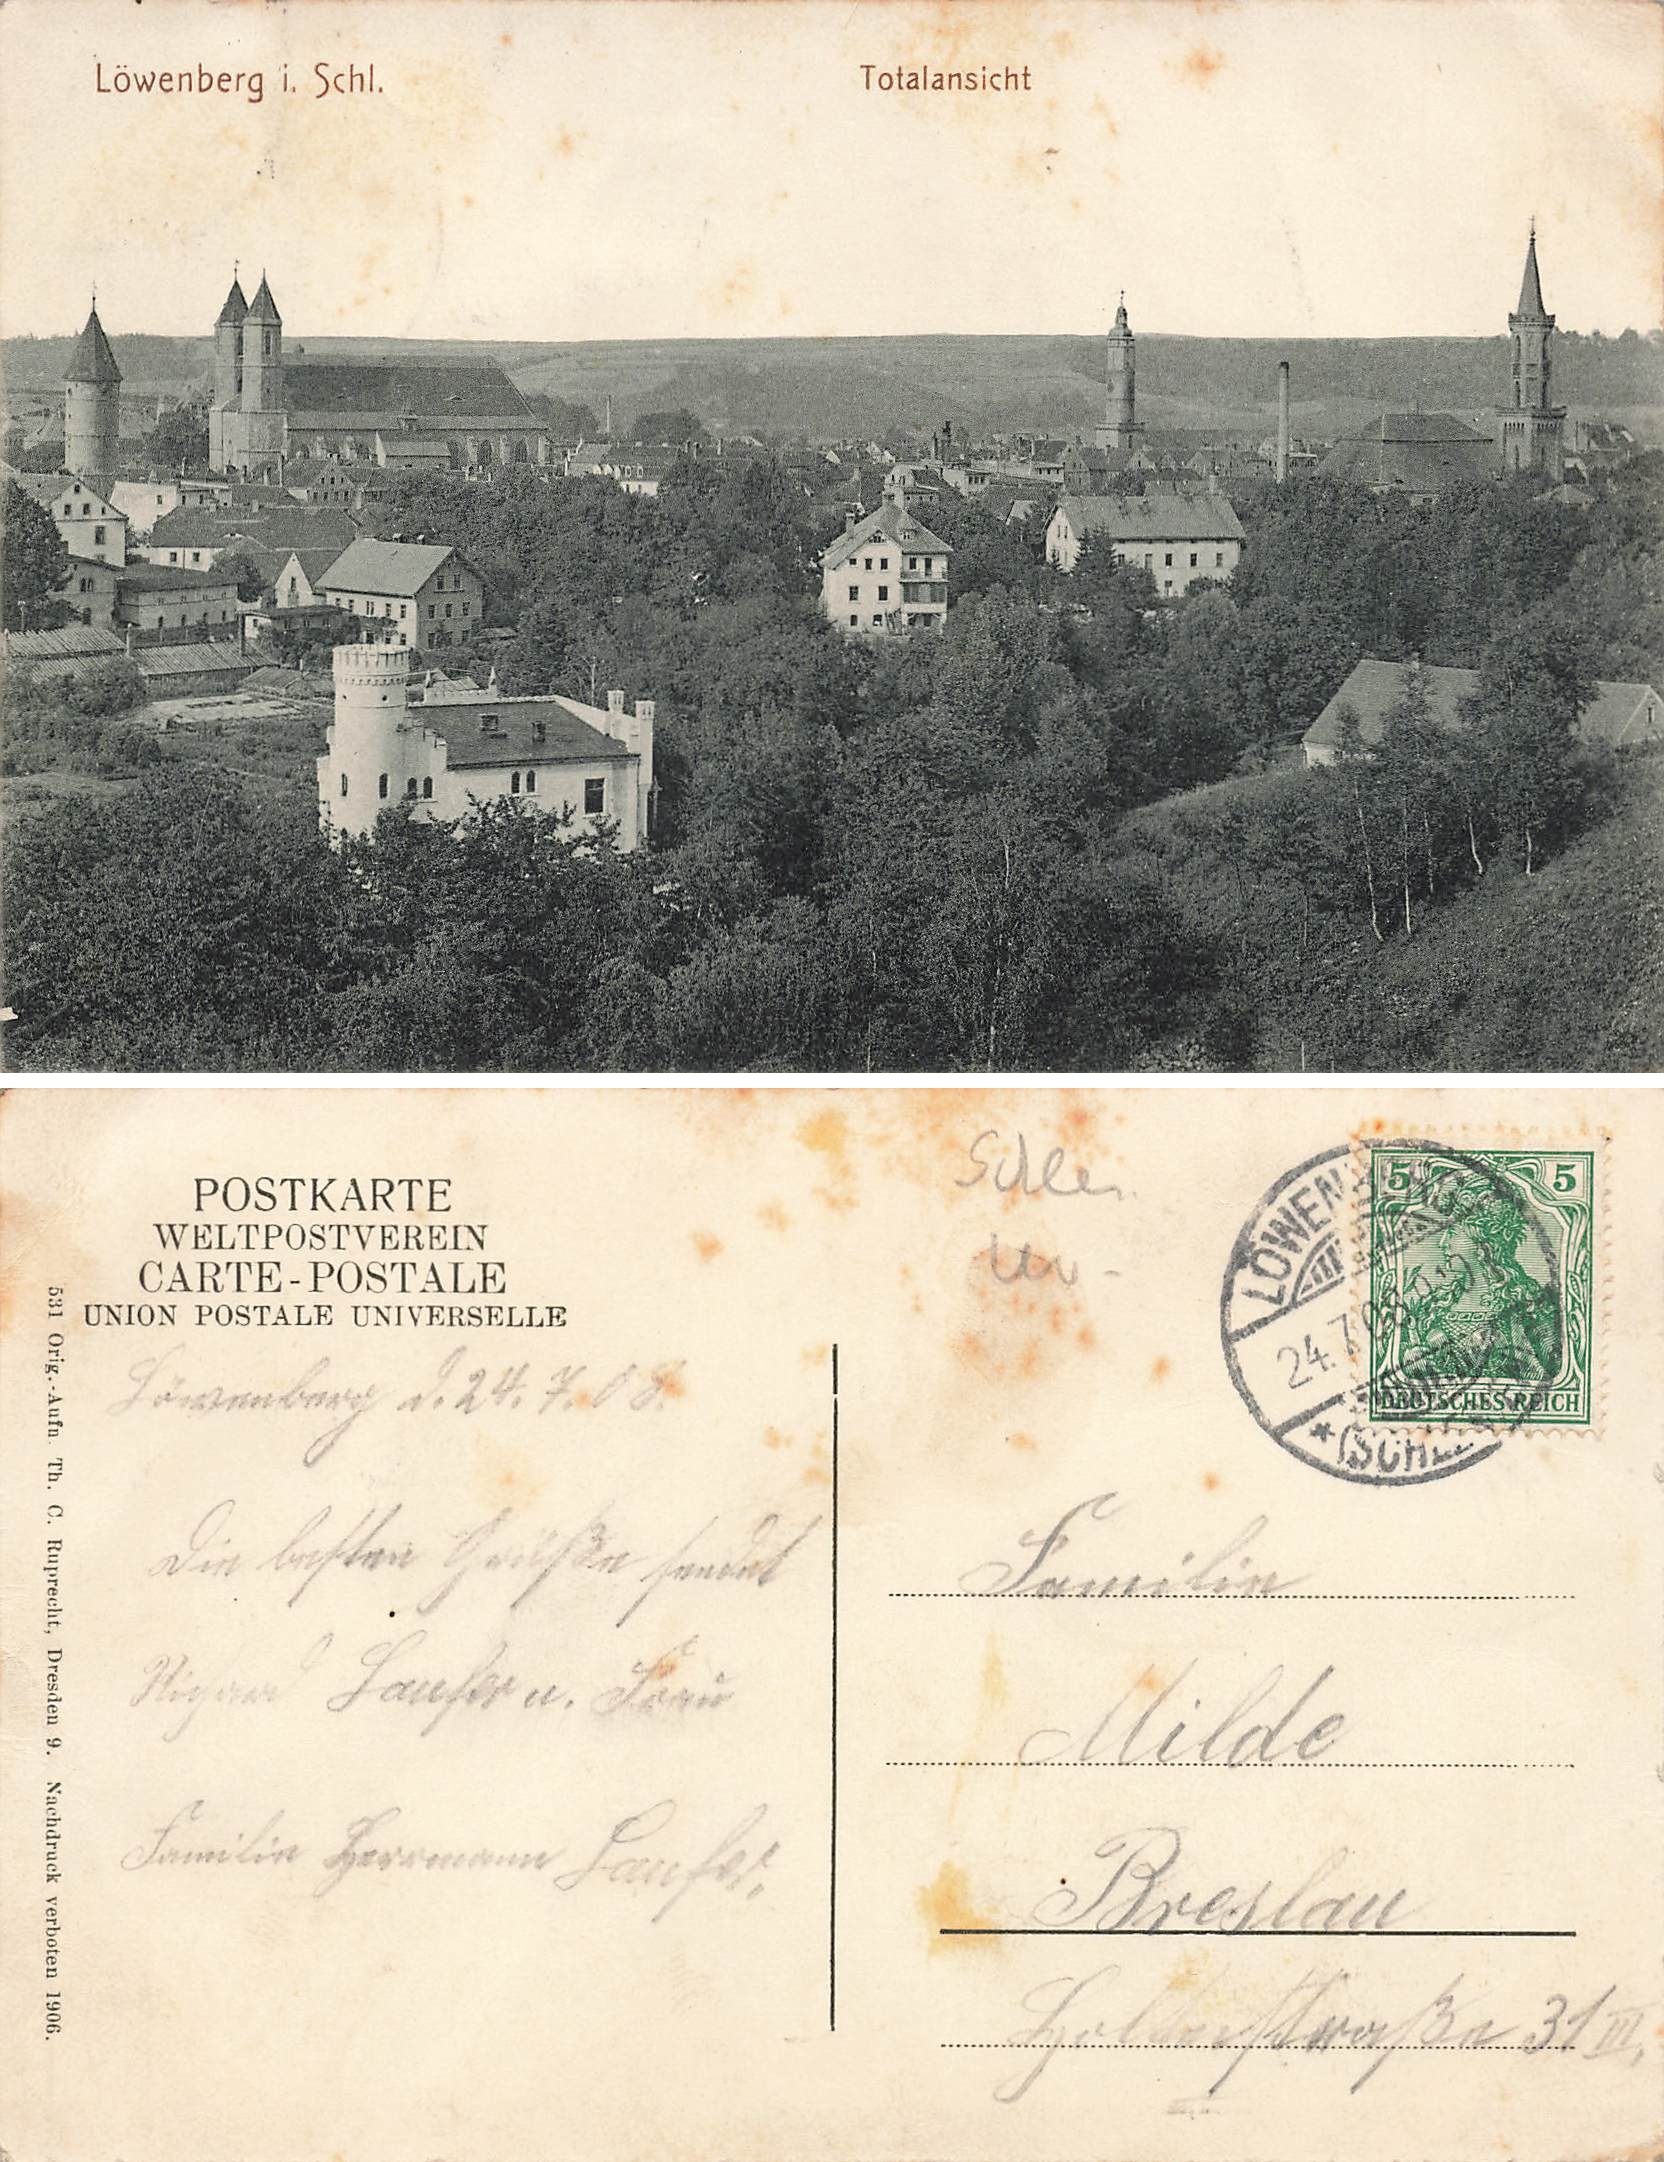 Löwenberg i. Schl.
Totalansicht
POSTKARTE
WELTPOSTVEREIN
CARTE-POSTALE
UNION POSTALE UNIVERSELLE
531 Orig.-Aufn. Th. C. Ruprecht, Dresden 9. Nachdruck verboten 1906.
Löwenberg d. 24. 7. 08.
Die besten Grüße sendet
Laufer u. Frau
Familie Herrmann Laufer.
LÖWENBERG
24.7.08
(SCHL.)
5 5
DEUTSCHES REICH
Familie
Milde
Breslau
31 III,